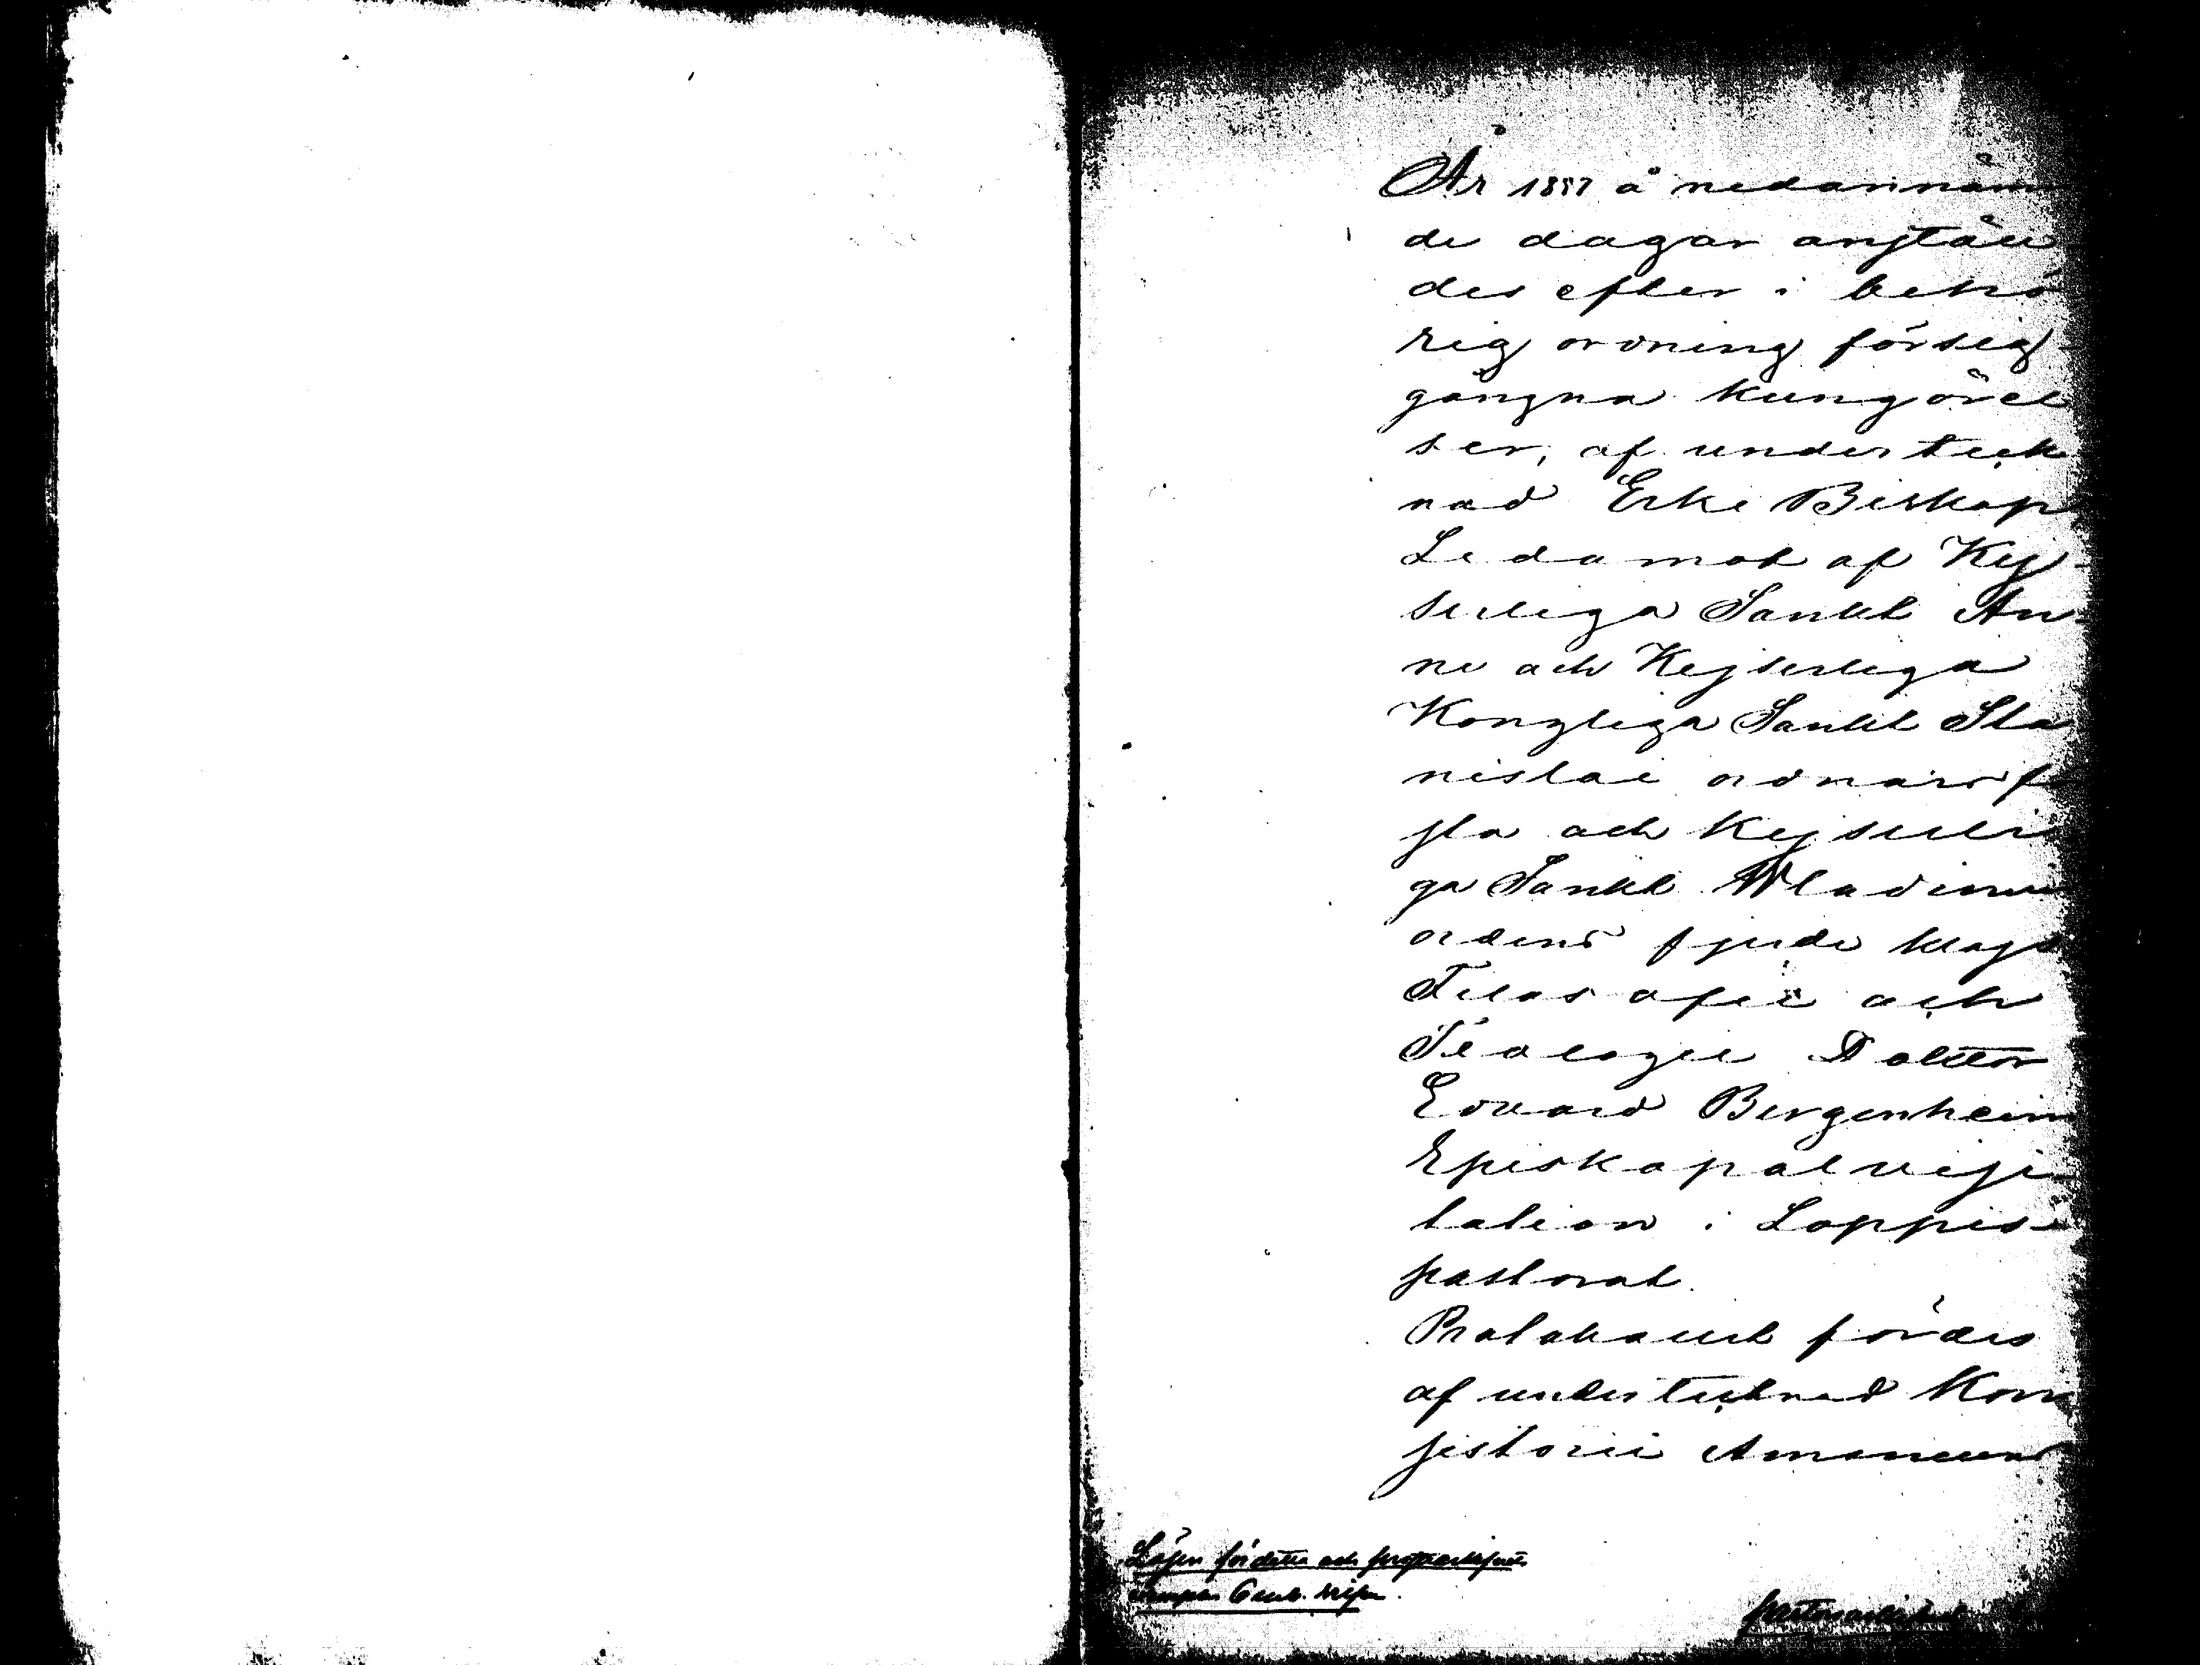 År 1857 å nedannämn
de dagar anstäl
des efter i behö
rig ordning försig-
gångna kungörel
ser, af underteck
nad Erke Biskop
Ledamot af Kej-
serliga Sankt An-
ne och Kejserliga
Kongliga Sankt Sta
nislai ordnars f
sta och Kejserli
ga Sankt Wladimi
ordens fjerde klass
Filosofie och
Teologie Doktor
Edvard Bergenheim
Episkopalvisi-
tation i Loppis
pastorat.
Protokollet fördes
af undertecknad Kon
sistorii Amanuens
Lösen för detta och